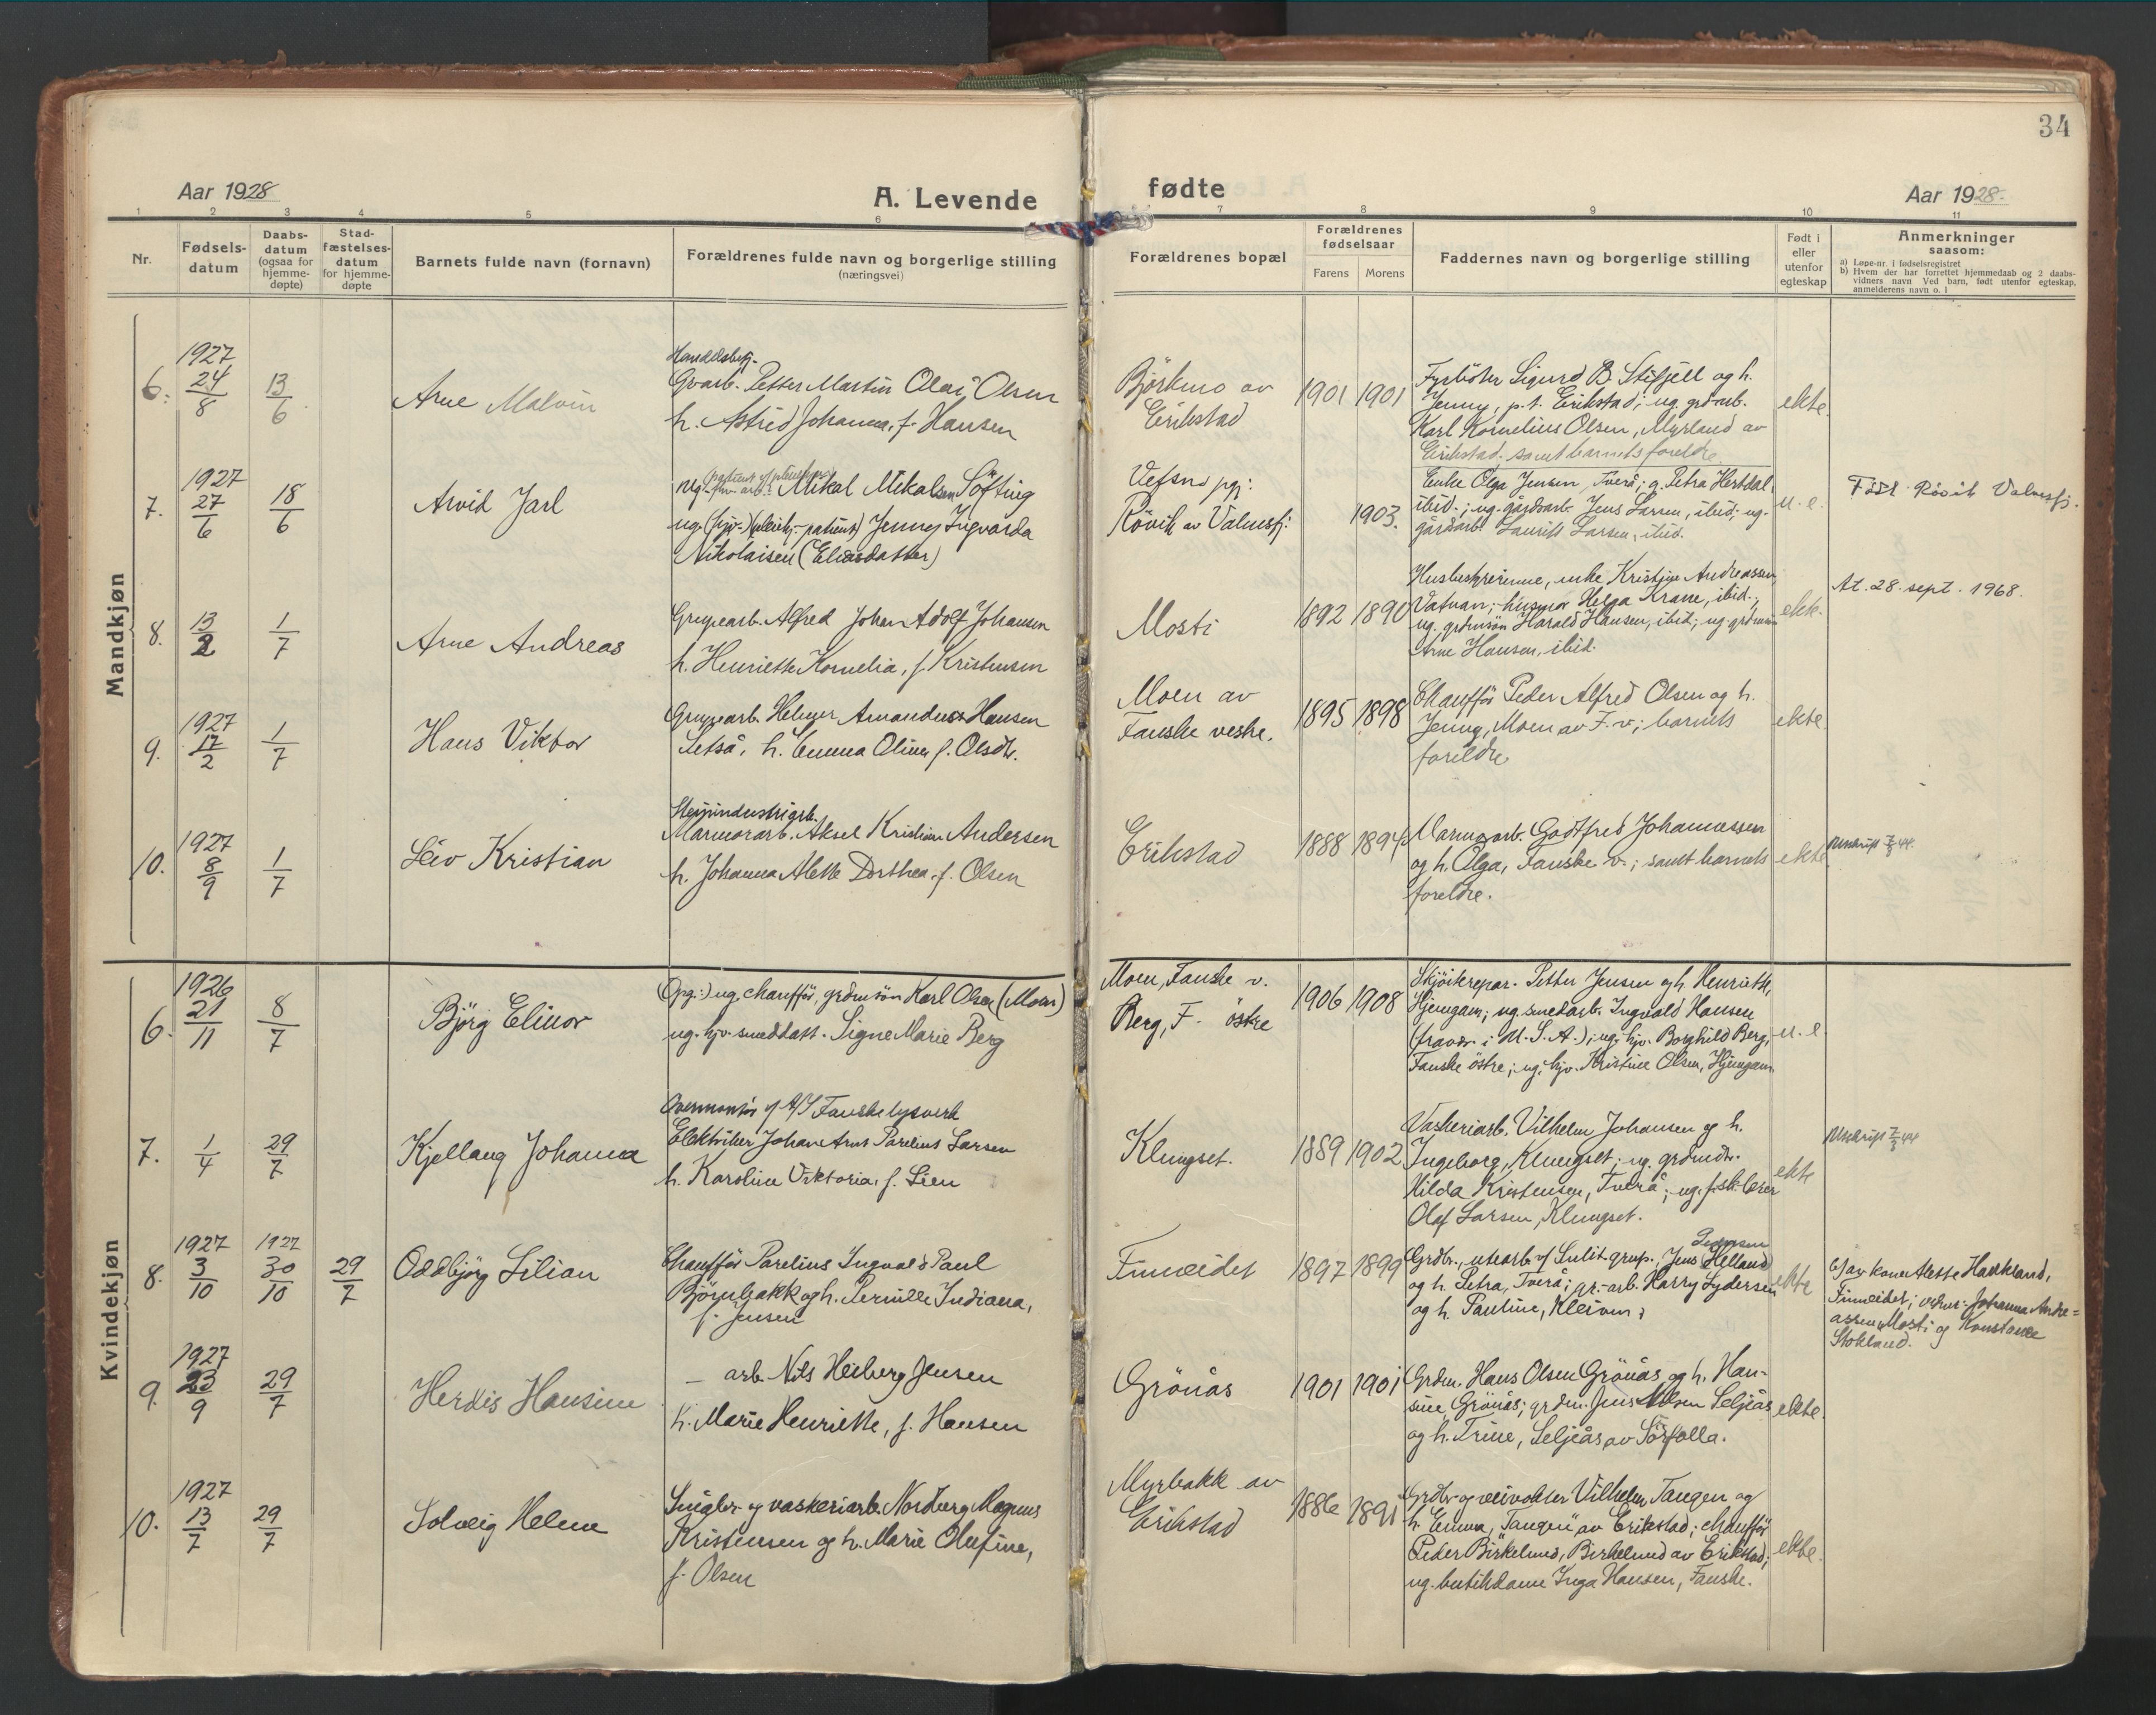 34
Aar 1928
A. Levende
fødte
Aar 1928.
1 2 3 4 5 6 7 8 9 10 11
Nr.
Fødsels-
datum
Daabs-
datum
(ogsaa for
hjemme-
døpte)
Stad-
fæstelses-
datum
for hjemme-
døpte
Barnets fulde navn (fornavn)
Forældrenes fulde navn og borgerlige stilling
(næringsvei)
Forældrenes bopæl
Forældrenes
fødselsaar
Farens Morens
Faddernes navn og borgerlige stilling
Født i
eller
utenfor
egteskap
Anmerkninger
saasom:
a) Løpe-nr. i fødselsregistret
b) Hvem der har forrettet hjemmedaab og 2 daabs-
vidners navn Ved barn, født utenfor egteskap,
anmelderens navn o. l
Mandkjøn
6.
1927
24/8
13/6
Arne Malvin
Gvarb. Petter Martin Olai Olsen
h. Astrid Johanna, f. Hansen
Björkmo av
Erikstad
1901 1901
Fyrböter Sigurd B. Stifjell og h.
Jenny, p.t. Erikstad; ug. grdarb.
Karl Kornelius Olsen, Myrland av
Erikstad. samt barnets foreldre.
ekte.
7.
1927
27/6
18/6
Arvid Jarl
Mikal Mikalsen Söfting
ug. (hjv.) Jenny Ingvarda
Nikolaisen (Eliasdatter)
Vefsn pgj:
Rövik av Valnesfj:
1903.
Enke Olga Jensen, Tverå; g. Petra Hestdal,
ibid.; ug. gårdsarb. Jens Larsen, ibid; ug.
gårdarb. Laurits Larsen, ibid.
u. e.
Född Rövik Valnesfj.
8.
13/2
1/7
Arne Andreas
Grupearb. Alfred Johan Adolf Johansen
h. Henriette Kornelia, f. Kristensen
Mosti
1892 1890
Husbestyrerinne, enke Kristine Andreassen,
Vatnan; husmor Helga Krane, ibid.;
ug. grdmsön Harald Hansen, ibid; ug. grdmsön
Arne Hansen, ibid.
ekte.
At. 28. sept. 1968.
9.
1927
17/2
1/7
Hans Viktor
Grupearb. Helmer Amandus Hansen
Setså, h. Emma Oline f. Olsdtr.
Moen av
Fauske vestre.
1895 1898
Chaufför Peder Alfred Olsen og h.
Jenny, Moen av F. v; barnets
foreldre
ekte.
10.
1927
8/9
1/7
Leiv Kristian
Steinindustriarb.
Marmorarb. Aksel Kristian Andersen
h. Johanna Alette Dorthea, f. Olsen
Erikstad
1888 1894
Marmorarb. Godtfred Johannessen
og h. Olga, Fauske v.; samt barnets
foreldre.
ekte
Utskrift 7/3 44.
Kvindekjøn
6.
1926
21/11
8/7
Björg Elinor
(Opg:) ug. chaufför, grdmsön Karl Olsen (Moen)
ug. hjv. smeddatt. Signe Marie Berg
Moen, Fauske v.
Berg, F. östre
1906 1908
Skjöiterepar. Petter Jensen og h. Henriette,
Hjemgam; ug. smedarb. Ingvald Hansen
(fravær. i U. S. A.); ug. hjv. Borghild Berg,
Fauske östre; ug. hjv. Kristine Olsen, Hjemgam
u. e.
7.
1/4
29/7
Kjellaug Johanna
Overmontör v/ A/S Fauske lysverk
Elektriker Johan Arnt Parelius Larsen
h. Karoline Viktoria, f. Lien
Klungset.
1889 1902
Vaskeriarb. Vilhelm Johansen og h.
Ingeborg, Klungset; ug. grdmdtr.
Hilda Kristensen, Tverå; ug. f.sk. lærer
Olaf Larsen, Klungset.
ekte
Utskrift 7/3 44
8.
1927
3/10
1927
30/10
29/7
Oddbjörg Lilian
Chaufför Parelius Ingvald Paul
Björnbakk og h. Pernille Indiana,
f. Jensen
Finneidet
1897 1899
Grdbr., utearb. v/ Sulit. grup. Jens Helland
og h. Petra, Tverå; gr.-arb. Harry Lydersen
og h. Pauline, Kleiven;
ekte
b) av kone Alette Haukland,
Finneidet; vidner: Johanna Andre=
assen, Mosti og Konstanse
Stokland.
9.
1927
23/9
29/7
Herdis Hansine
— arb. Nils Heiberg Jensen
h. Marie Henriette, f. Hansen
Grönås
1901 1901
Grdm. Hans Olsen Grönås og h. Han-
sine, Grönås; grdm. Jens Olsen Seljeås
og h. Trine, Seljeås av Sörfolla.
ekte.
10.
1927
13/7
29/7
Solveig Helene
Smigbr. og vaskeriarb. Nordberg Magnus
Kristensen og h. Marie Olufine,
f. Olsen
Myrbakk av
Erikstad
1886 1891
Grdbr. og veivokter Vilhelm Tangen og
h. Emma, "Tangen" av Erikstad; chaufför
Peder Birkelund, Birkelund av Erikstad;
ug. butikdame Inga Hansen, Fauske.
ekte.